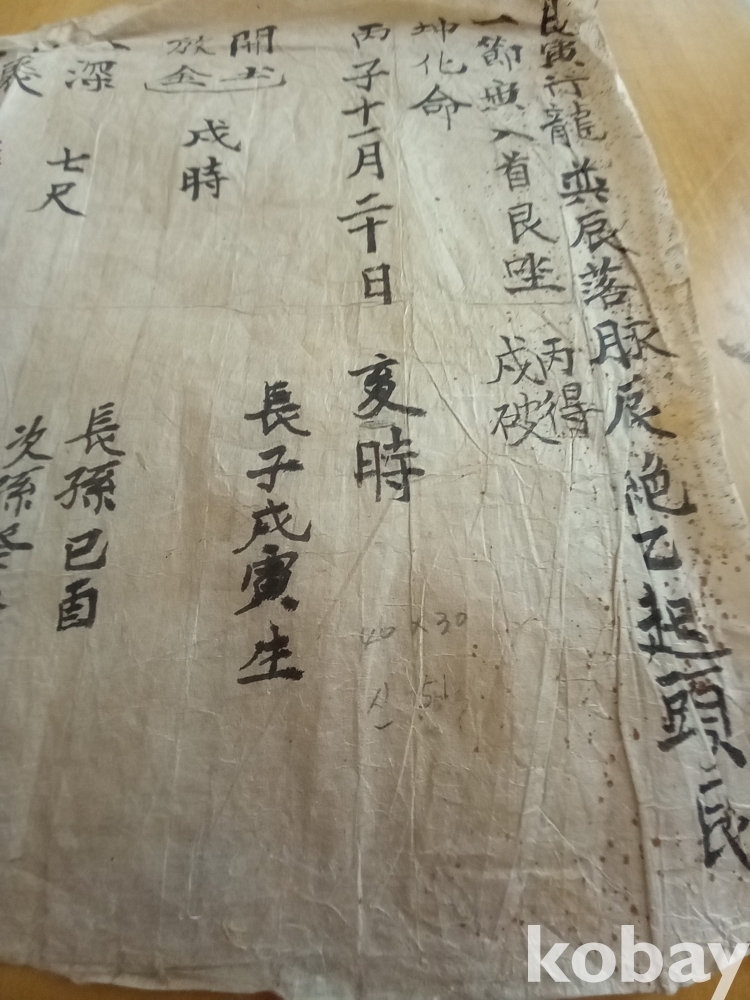 艮寅行龍巽辰落脉辰絶乙起頭艮
一節寅入首艮坐 丙得
戌破
坤化命
丙子十一月二十日 亥時
開土
破土 戌時 長子戊寅生
深 七尺 長孫己酉
次孫
40 x 30
kobay